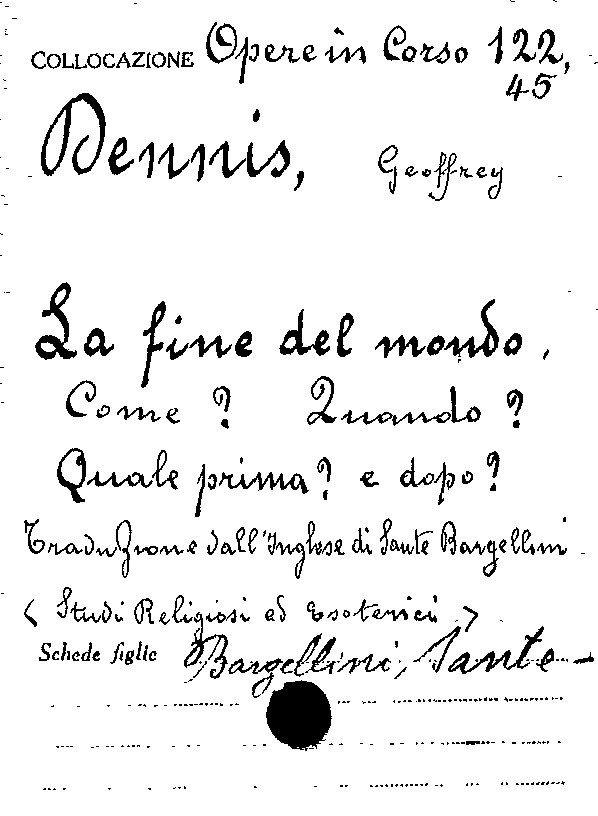 COLLOCAZIONE Opere in Corso 122,
45
Dennis, Geoffrey
La fine del mondo.
Come? Quando?
Quale prima? e dopo?
Traduzione dall'Inglese di Sante Bargellini
< Studi Religiosi ed Esoterici >
Schede figlie Bargellini, Sante -